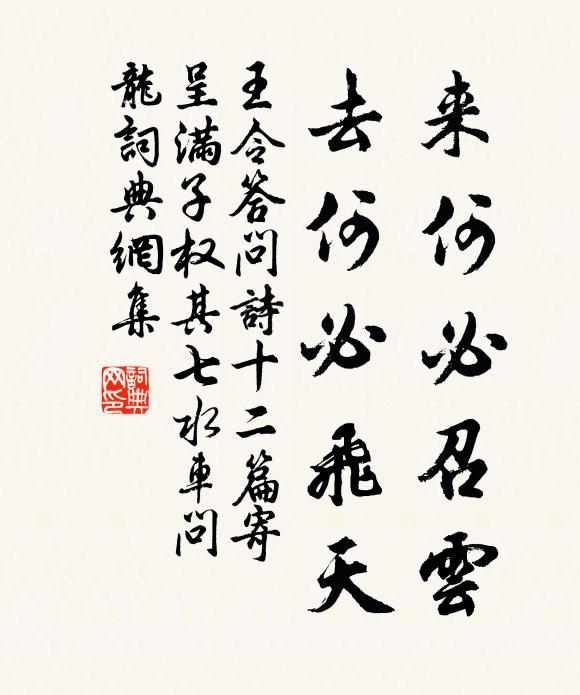 来何必召雲
去何必飛天
王令答問詩十二篇寄
呈滿子权其七水車問
龍詞典網集
詞典网印